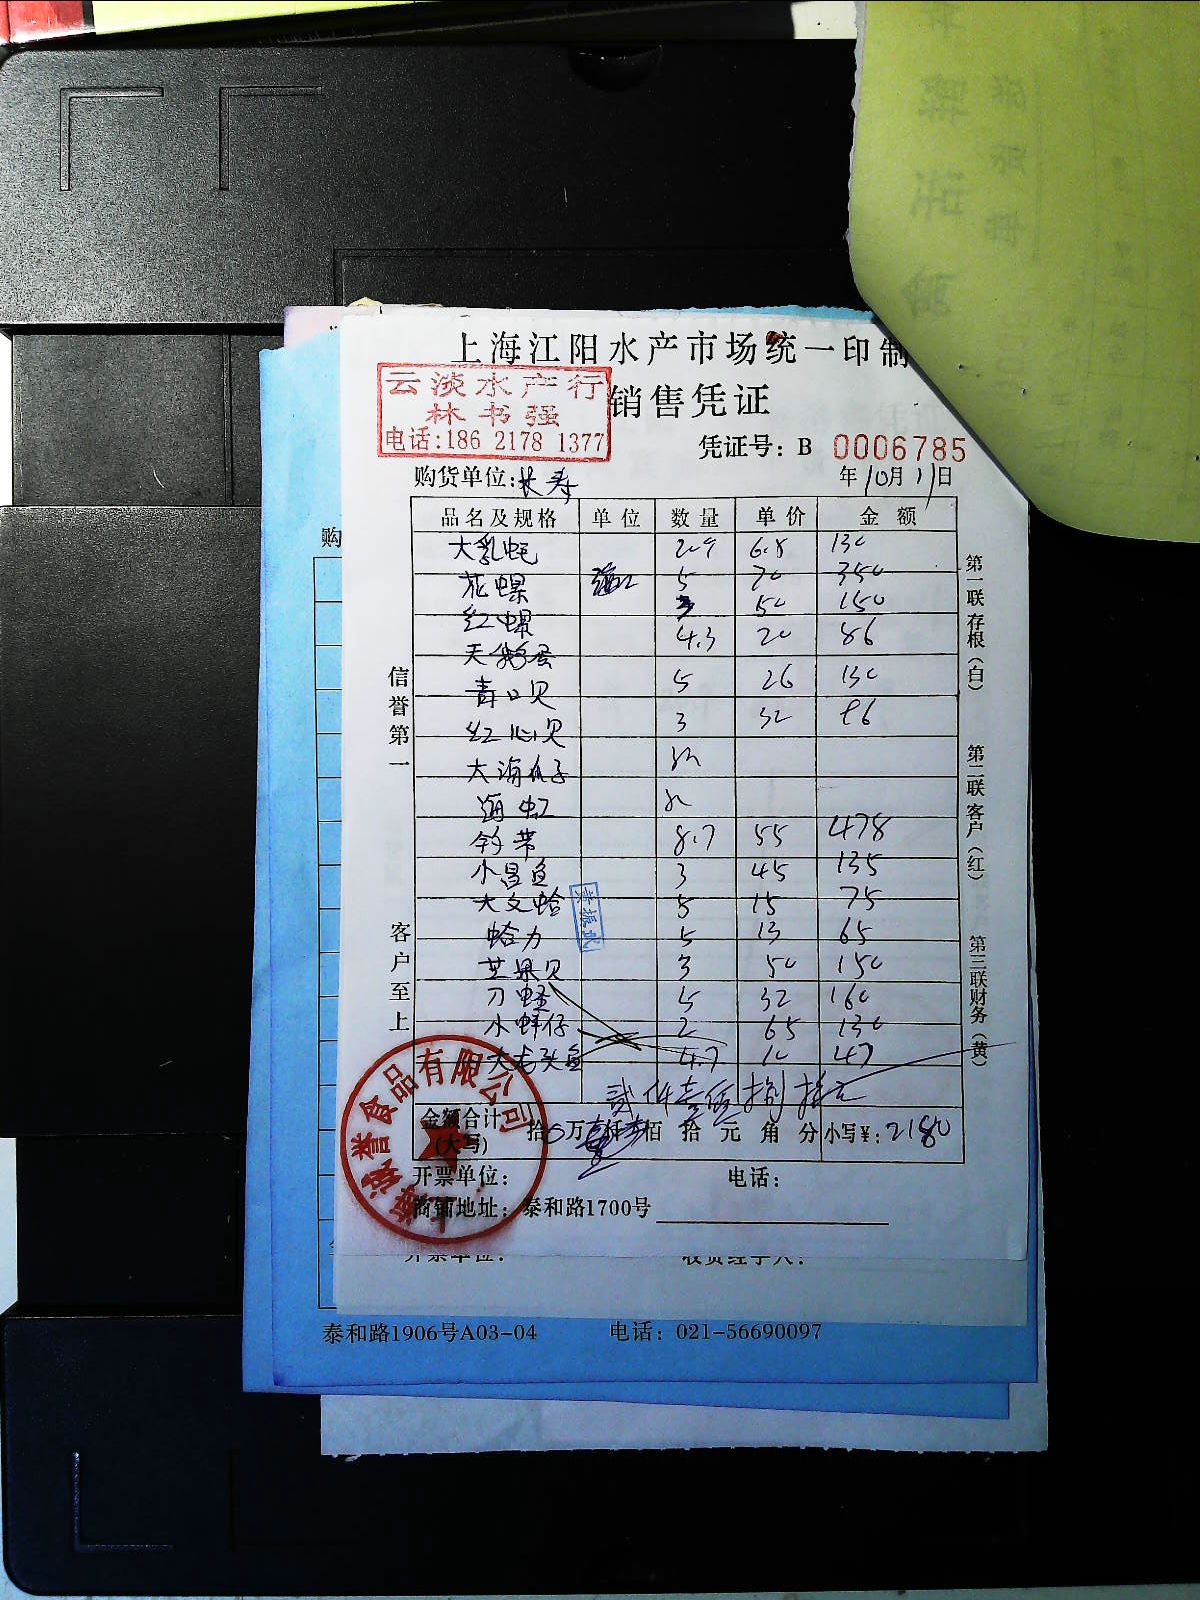 上海江阳水产市场统一印制
云淡水产行
林书强
电话:186 2178 1377
销售凭证
凭证号: B 0006785
购货单位:长寿 年10月11日
品名及规格 单位 数量 单价 金额
大乳蚝 6.5 130
花螺 5 70 350
红螺 3 50 150
天鹅蛋 4.3 20 86
青口贝 5 26 130
红心贝 3 32 96
大海瓜子
海虹
8.7 55 478
小昌鱼 3 45 135
大文蛤 5 15 75
蛤力 5 13 65
芒果贝 3 50 150
刀蛏 5 32 160
小蚌仔 2 65 130
大龙头鱼 4.7 10 47
贰仟壹佰捌拾元
金额合计(大写) 拾 万 佰 拾 元 角 分 小写¥: 2180
开票单位: 电话:
商铺地址: 泰和路1700号
信誉第一
客户至上
第一联 存根(白)
第二联 客户(红)
第三联 财务(黄)
购
开票单位: 收货经手人:
泰和路1906号A03-04 电话: 021-56690097